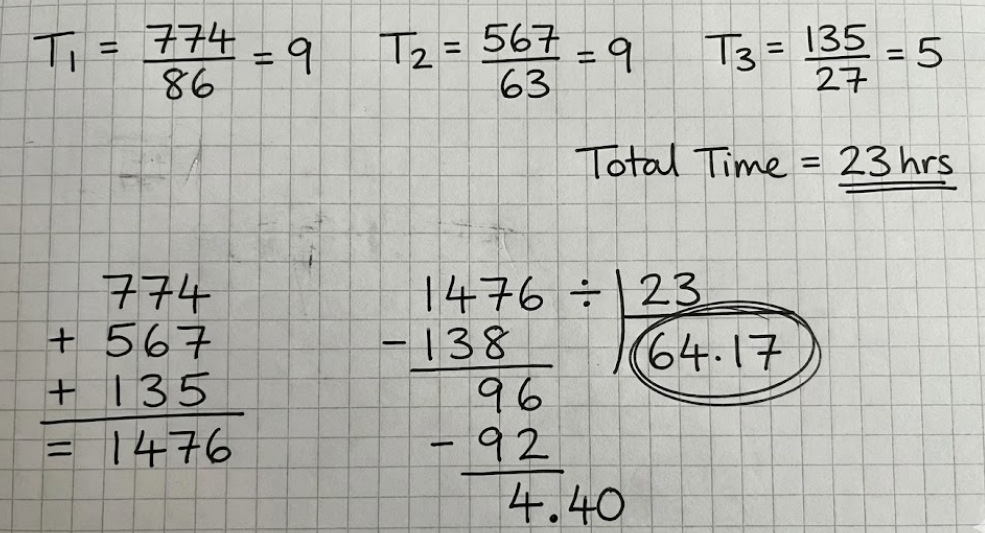 T₁ = 774/86 = 9 T₂ = 567/63 = 9 T₃ = 135/27 = 5
Total Time = 23 hrs
774
+ 567
+ 135
= 1476
1476 ÷ 23
- 138 64.17
96
- 92
4.40